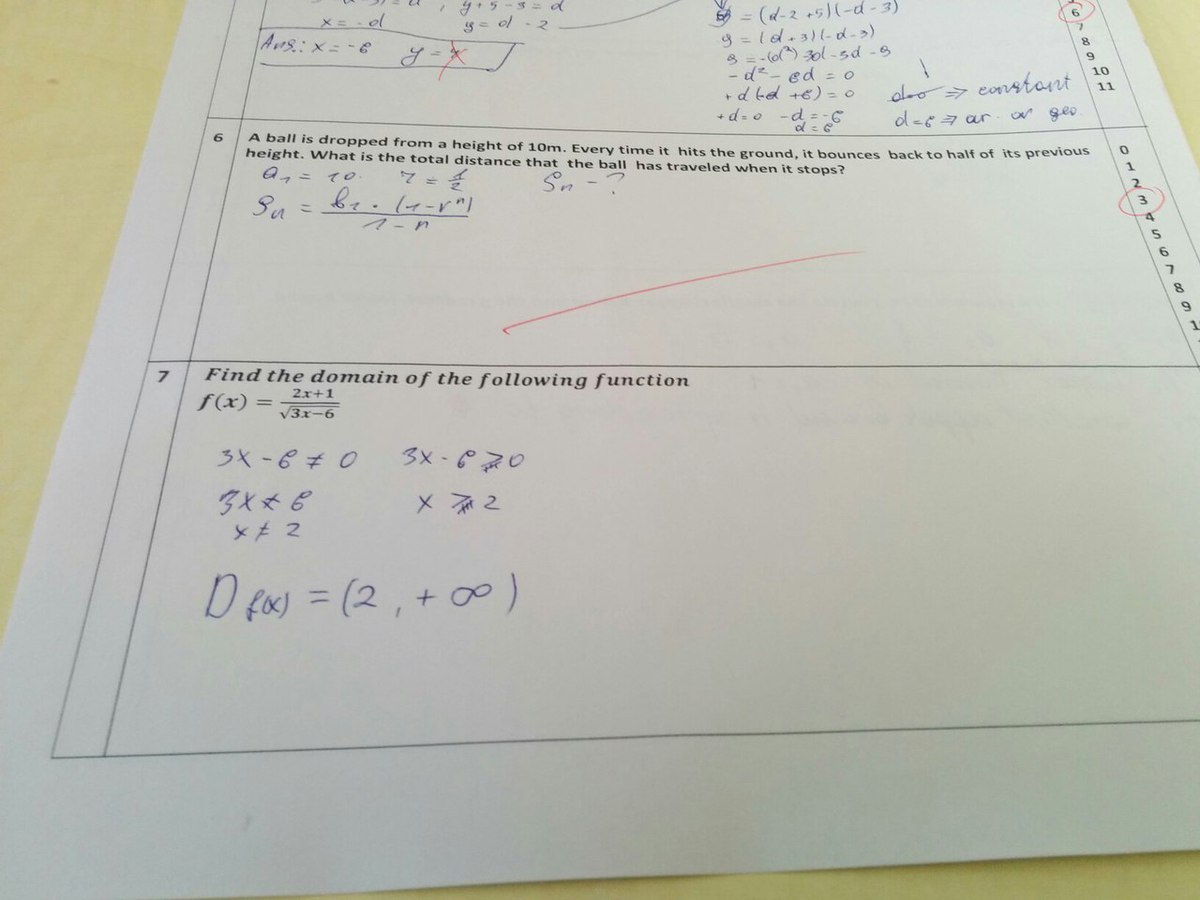 y + 5 - 3 = d
x = - d
y = d - 2
Ans.: x = -6 y =
= (d - 2 + 5)(-d - 3)
9 = (d + 3)(-d - 3)
- d² - 6d = 0
+ d(-d + 6) = 0
+d = 0 -d = -6
d = 6
d=0 => constant
d = 6 => ar. or geo.
6
7
8
9
10
11
6 A ball is dropped from a height of 10m. Every time it hits the ground, it bounces back to half of its previous
height. What is the total distance that the ball has traveled when it stops?
a₁ = 10. r = 1/2 Sn - ?
Sn = b1 · (1 - rⁿ) / 1 - n
0
1
2
3
4
5
6
7
8
9
7 Find the domain of the following function
f(x) = 2x+1 / √3x−6
3x - 6 ≠ 0 3x - 6 ≥ 0
3x ≠ 6 x ≥ 2
x ≠ 2
D f(x) = (2, + ∞)